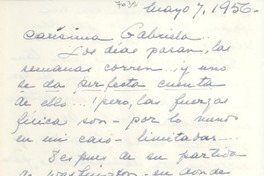 7038
Mayo 7, 1956-
Carísima Gabriela..
Los días pasan, las
semanas corren... ¡y uno
se da perfecta cuenta
de ello! ¡pero, las fuerzas
física son - por lo menos
en mi caso - limitadas...
Después de su partida
de Washington - en donde